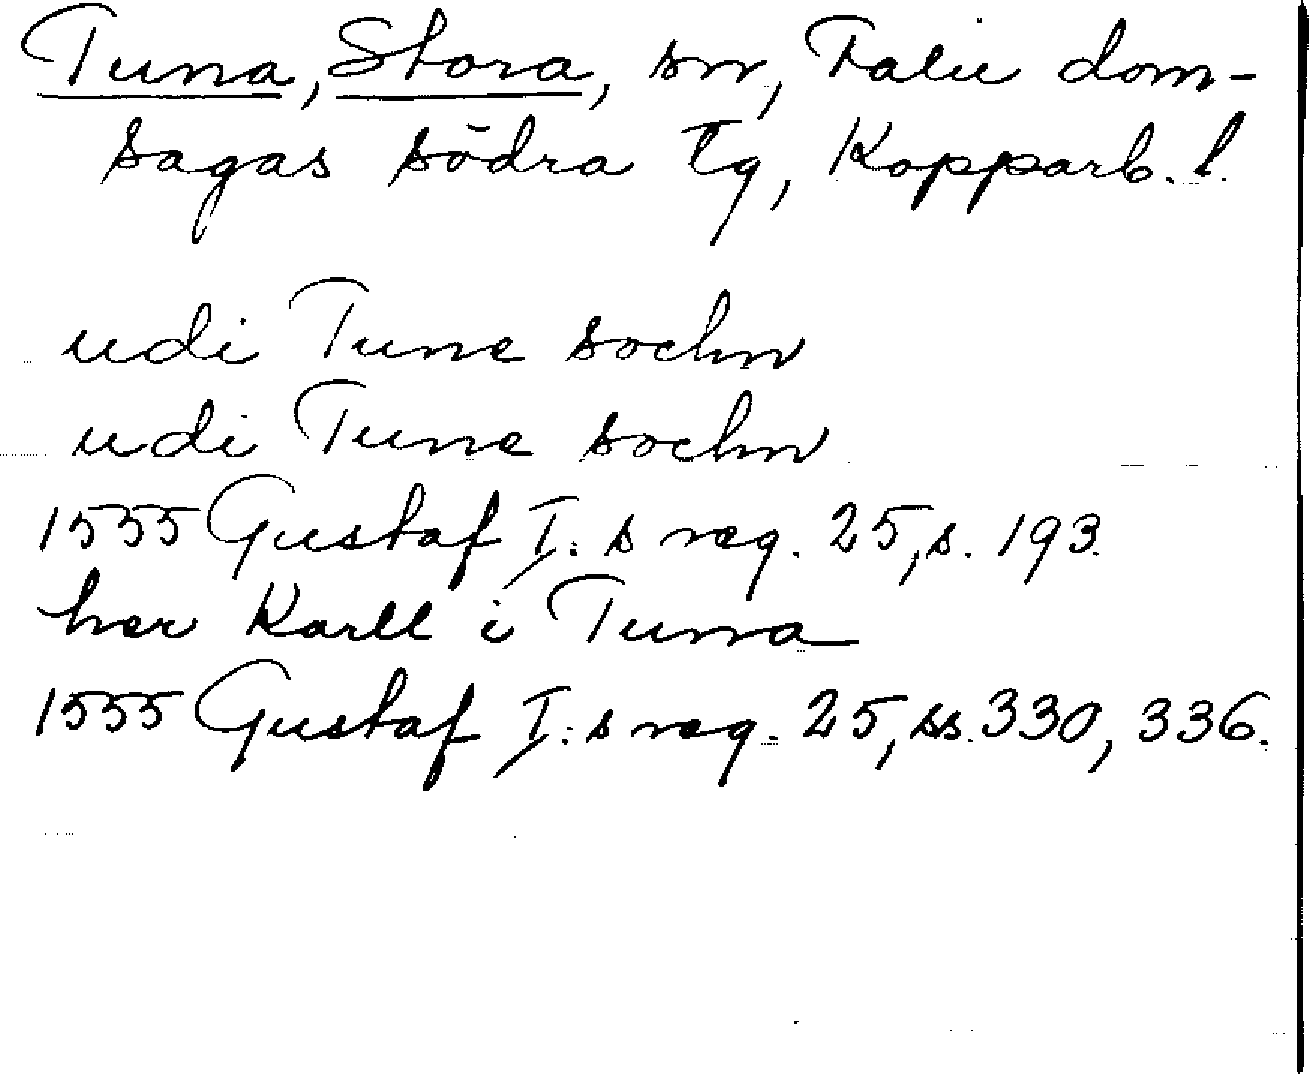 Tuna, Stora, sn, Falu dom-
sagas södra tg, Kopparb. l.
udi Tune sochn
udi Tune sochn
1555 Gustaf I:s reg. 25, s. 193.
her Karll i Tuna
1555 Gustaf I:s reg. 25, ss. 330, 336.